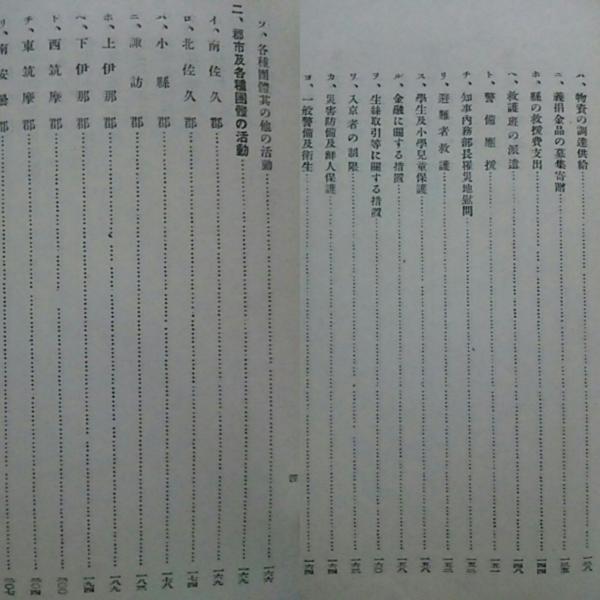 ハ、物資の調達供給……一三八
ニ、義捐金品の募集寄贈
ホ、縣の救援費支出……一四四
ヘ、救護班の派遣……一四八
ト、警備應援……一五一
チ、知事内務部長罹災地慰問……一五二
リ、避難者救護……一五三
ス、學生及小學兒童保護……一五八
ル、金融に關する措置……一五八
ヲ、生絲取引等に關する措置……一六〇
ワ、入京者の制限……一六三
カ、災害防備及鮮人保護……一六四
ヨ、一般警備及衞生……一六四
四
ソ、各種團體其の他の活動……一六六
二、郡市及各種團體の活動……一六九
イ、南佐久郡……一六九
ロ、北佐久郡……一七四
ハ、小縣郡……一七八
ニ、諏訪郡……一八三
ホ、上伊那郡……一八九
ヘ、下伊那郡……一九四
ト、西筑摩郡……二〇〇
チ、東筑摩郡……二〇四
リ、南安曇郡……二〇七